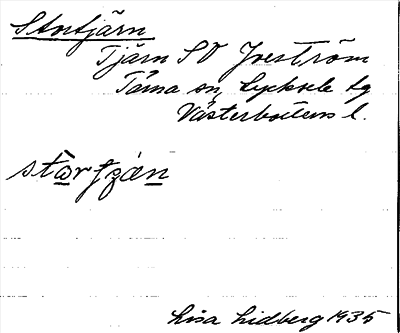 Stortjärn
Tjärn SV Joeström
Tärna sn, Lycksele lg
Västerbottens l.
Lisa Lidberg 1935